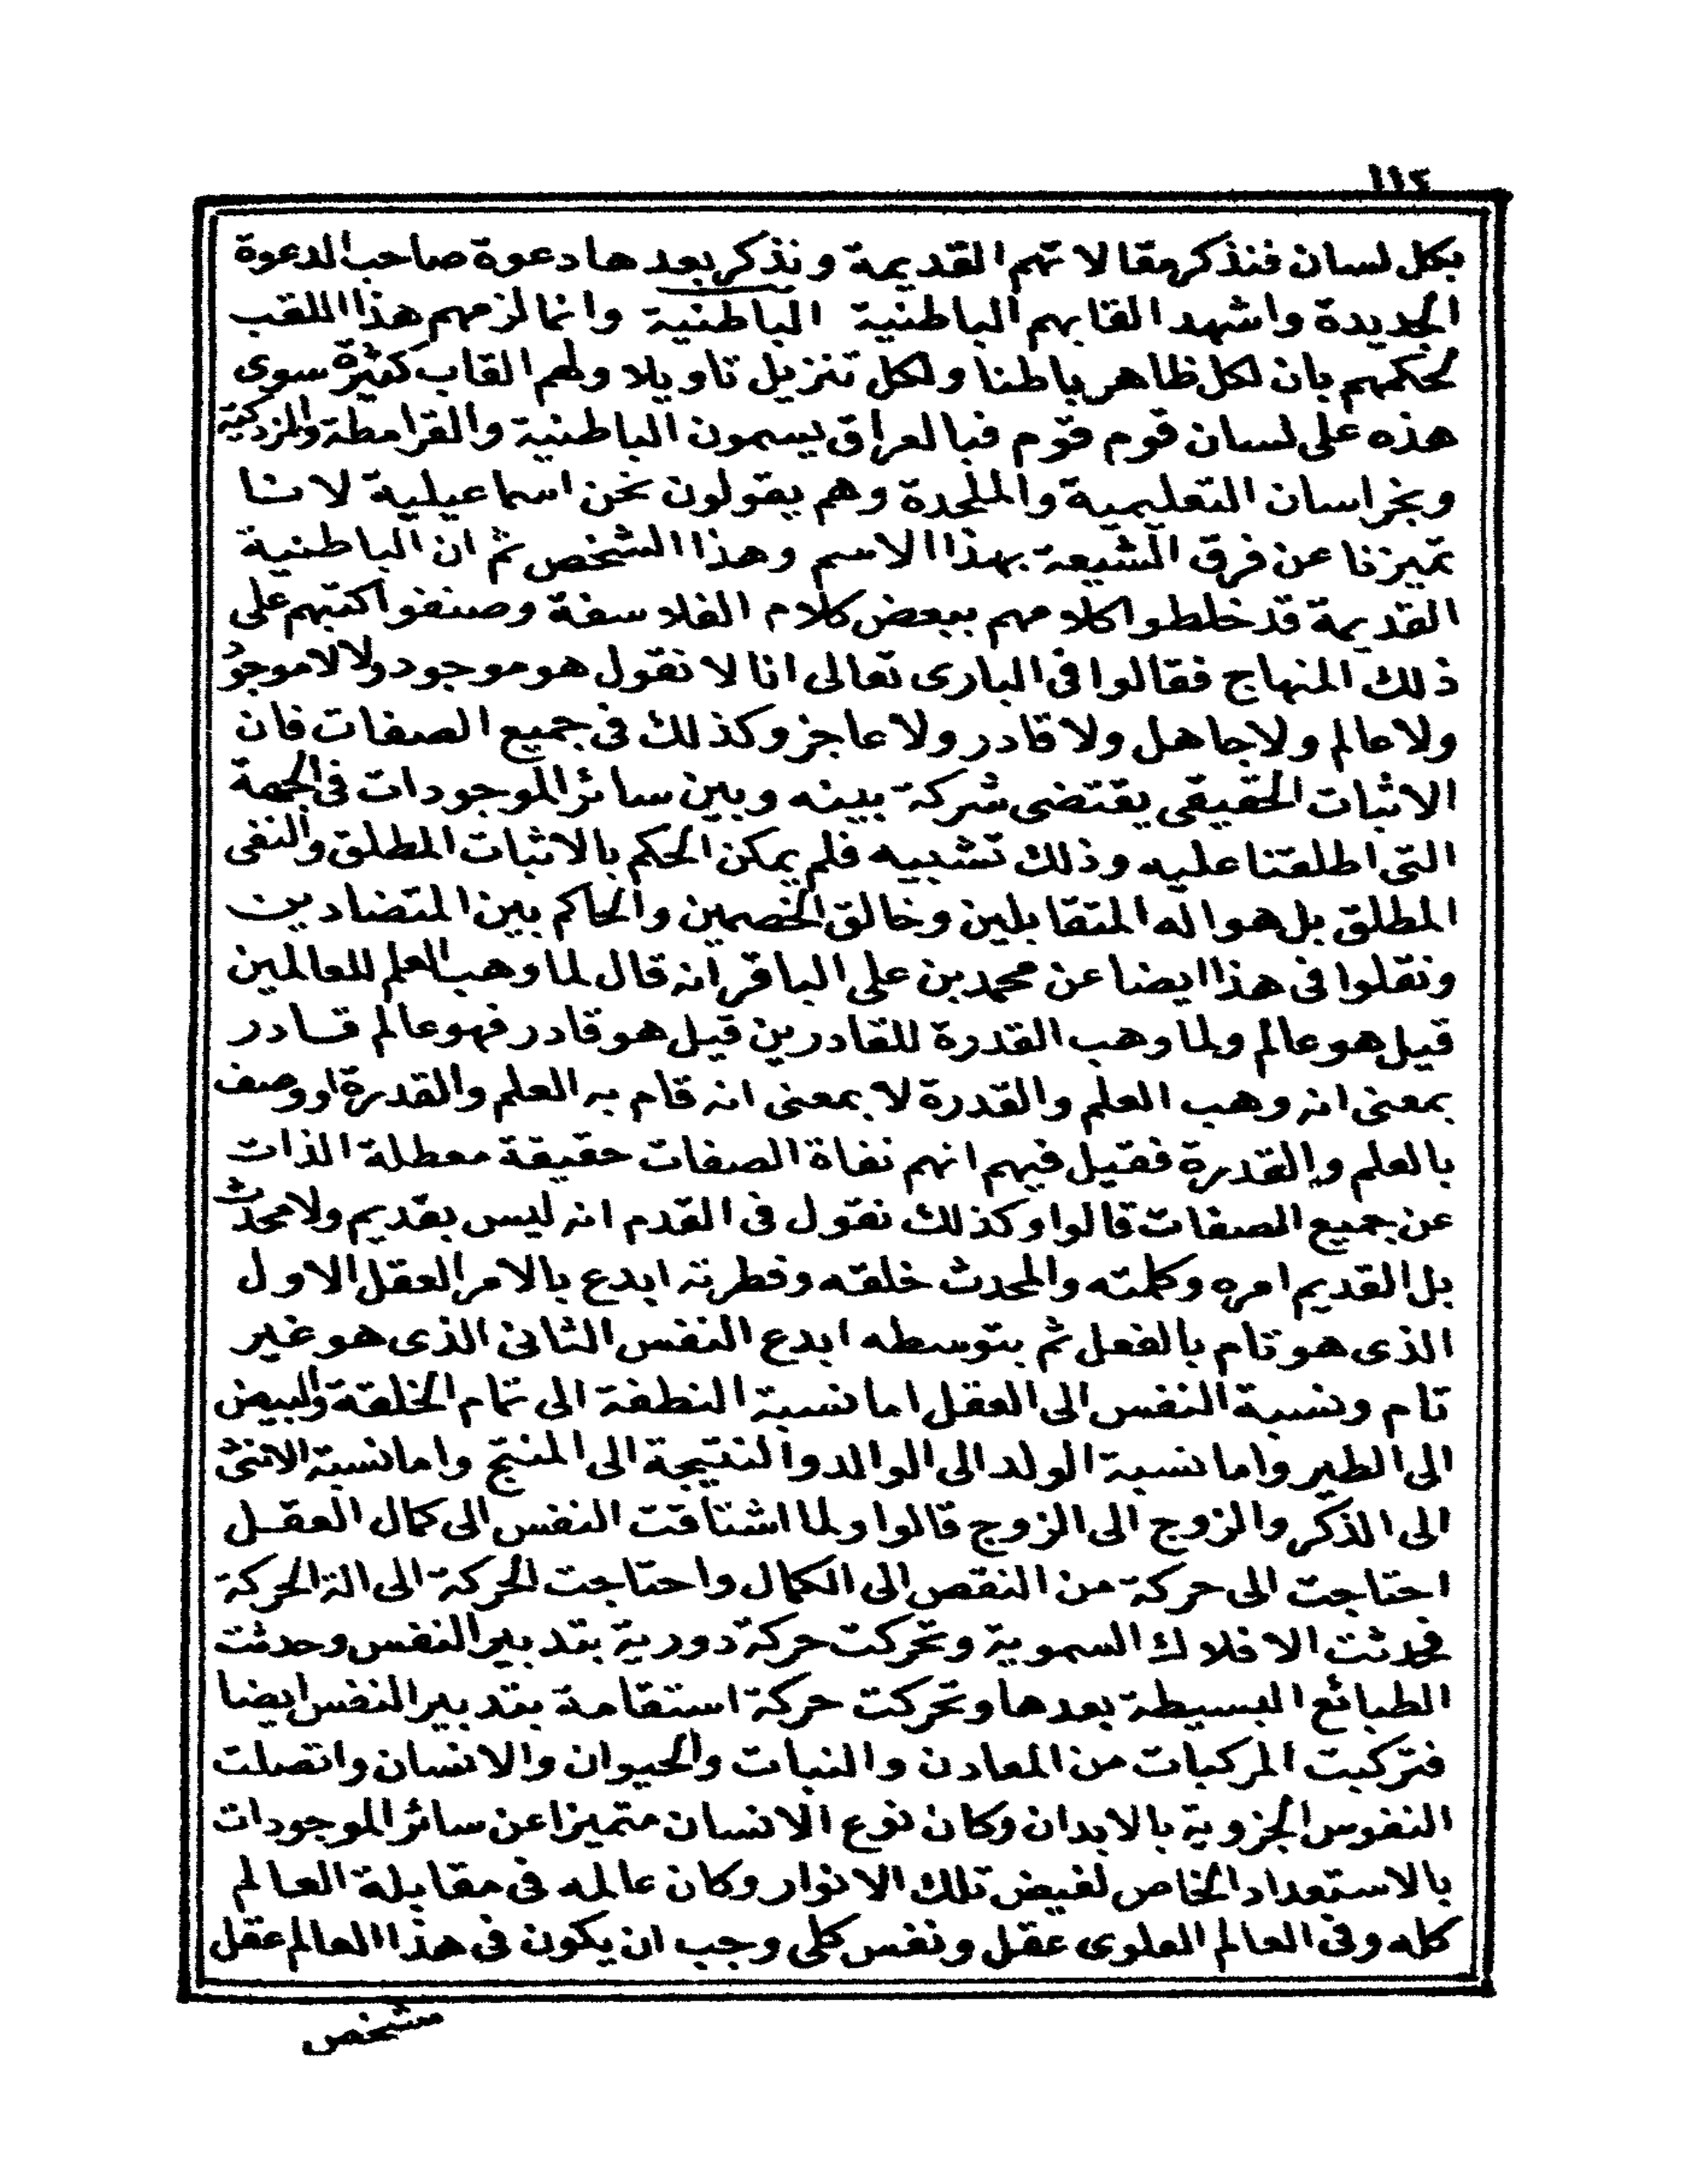 ١١٤
بكل لسان فنذكر مقالاتهم القديمة ونذكر بعدها دعوة صاحب الدعوة
الجديدة واشهد القابهم الباطنية الباطنية وانما لزمهم هذا اللقب
لحكمهم بان لكل ظاهر باطنا ولكل تنزيل تاويلا ولهم القاب كثيرة سوى
هذه على لسان قوم قوم فبالعراق يسمون الباطنية والقرامطة والمزدكية
وبخراسان التعليمية والملحدة وهم يقولون نحن اسماعيلية لانا
تميزنا عن فرق الشيعة بهذا الاسم وهذا الشخص ثم ان الباطنية
القديمة قد خلطوا كلامهم ببعض كلام الفلاسفة وصنفوا كتبهم على
ذلك المنهاج فقالوا فى البارى تعالى انا لا نقول هو موجود ولا لا موجود
ولا عالم ولا جاهل ولا قادر ولا عاجز وكذلك فى جميع الصفات فان
الاثبات الحقيقى يقتضى شركة بينه وبين سائر الموجودات فى الجهة
التى اطلقنا عليه وذلك تشبيه فلم يمكن الحكم بالاثبات المطلق والنفى
المطلق بل هو اله المتقابلين وخالق الخصمين والحاكم بين المتضادين
ونقلوا فى هذا ايضا عن محمد بن على الباقر انه قال لما وهب العلم للعالمين
قيل هو عالم ولما وهب القدرة للقادرين قيل هو قادر فهو عالم قادر
بمعنى انه وهب العلم والقدرة لا بمعنى انه قام به العلم والقدرة او وصف
بالعلم والقدرة فقيل فيهم انهم نفاة الصفات حقيقة معطلة الذات
عن جميع الصفات قالوا وكذلك نقول فى القدم انه ليس بقديم ولا محدث
بل القديم امره وكلمته والمحدث خلقه وفطرته ابدع بالامر العقل الاول
الذى هو تام بالفعل ثم بتوسطه ابدع النفس الثانى الذى هو غير
تام ونسبة النفس الى العقل اما نسبة النطفة الى تمام الخلقة والبيض
الى الطير واما نسبة الولد الى الوالد والنتيجة الى المنتج واما نسبة الانثى
الى الذكر والزوج الى الزوج قالوا ولما اشتاقت النفس الى كمال العقل
احتاجت الى حركة من النقص الى الكمال واحتاجت الحركة الى الة الحركة
فحدثت الافلاك السموية وتحركت حركة دورية بتدبير النفس وحدثت
الطبائع البسيطة بعدها وتحركت حركة استقامة بتدبير النفس ايضا
فتركبت المركبات من المعادن والنبات والحيوان والانسان واتصلت
النفوس الجزوية بالابدان وكان نوع الانسان متميزا عن سائر الموجودات
بالاستعداد الخاص لفيض تلك الانوار وكان عالمه فى مقابلة العالم
كله وفى العالم العلوى عقل ونفس كلى وجب ان يكون فى هذا العالم عقل
مشخص